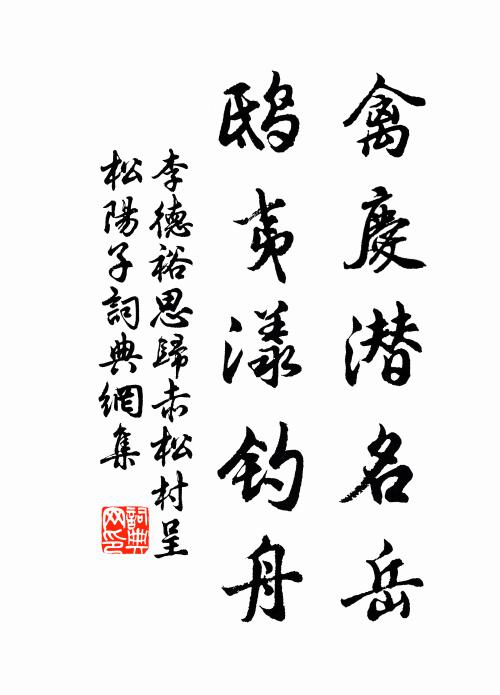 禽慶潛名岳
鴟夷漾釣舟
李德裕思歸赤松村呈
松陽子詞典網集
詞典網印